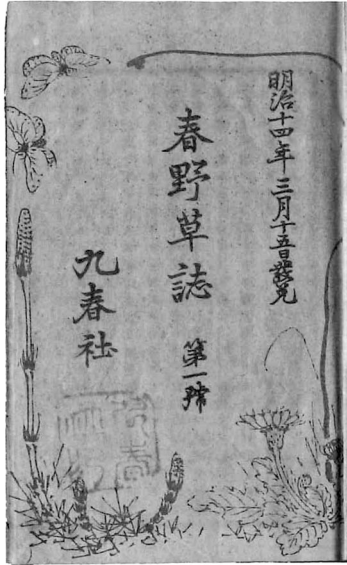 明治十四年三月十五日發兌
春野草誌 第一號
九春社